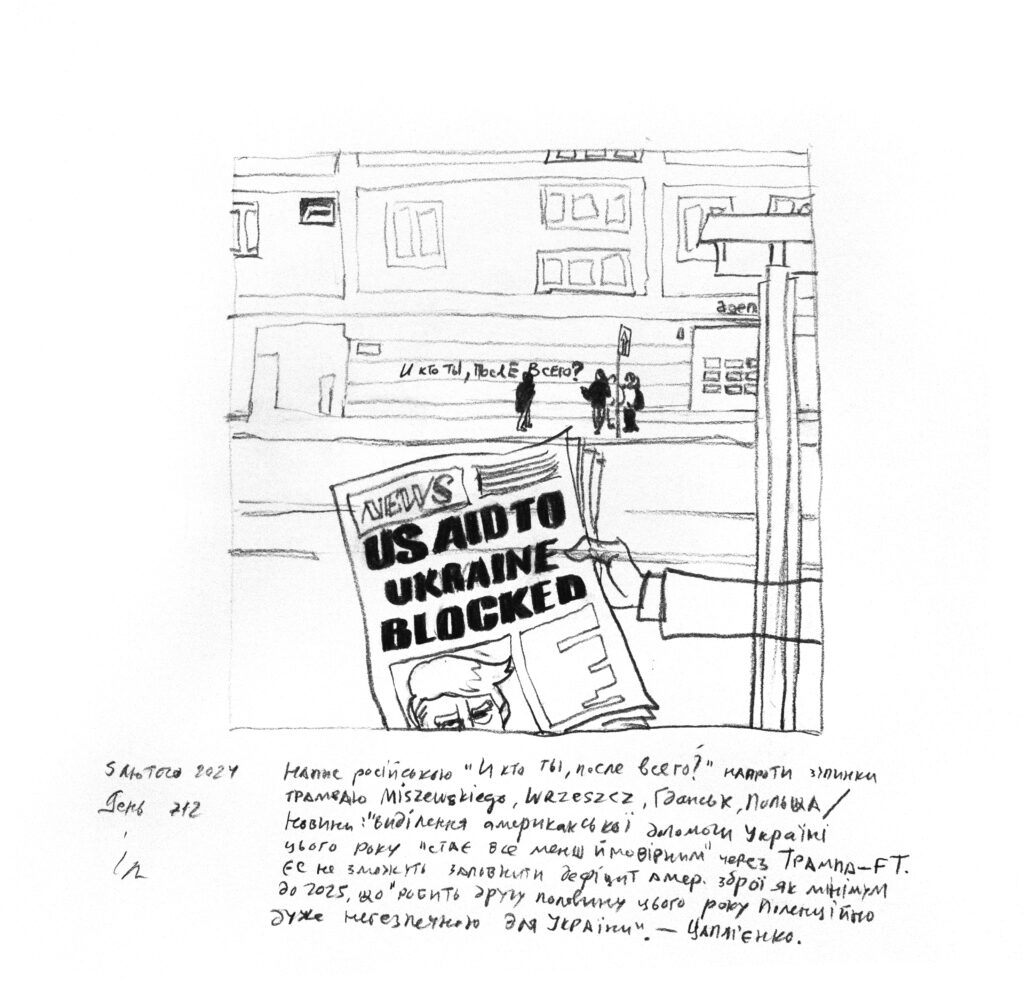 agen
И кто ты, после всего?
NEWS
US AID TO
UKRAINE
BLOCKED
5 лютого 2024
День 712
Напис російською "И кто ты, после всего?" напроти зупинки
трамваю Miszewskiego, Wrzeszcz, Гданськ, Польща/
Новини: "виділення американської допомоги Україні
цього року "стає все менш ймовірним" через Трампа – FT.
ЄС не зможуть заповнити дефіцит амер. зброї як мінімум
до 2025, що "робить другу половину цього року потенційно
дуже небезпечною для України". – Цаплієнко.